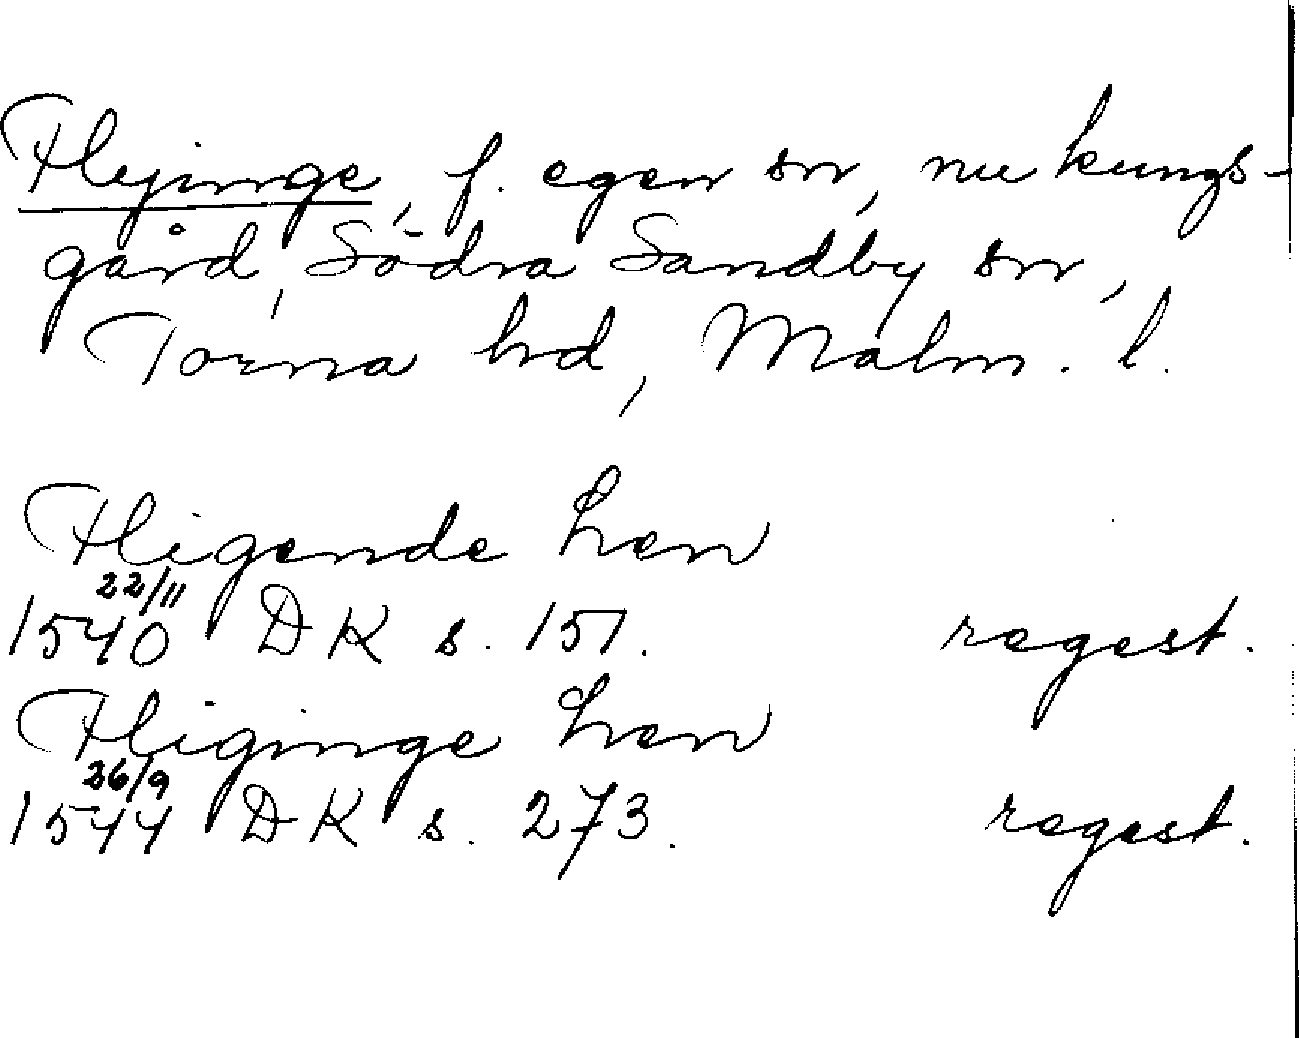 Flyinge, f. egen sn, nu kungs-
gård, Södra Sandby sn,
Torna hd, Malm. l.
Fligende len
22/11
1540 DK s. 151. regest.
Fliginge len
26/9
1544 DK s. 273. regest.